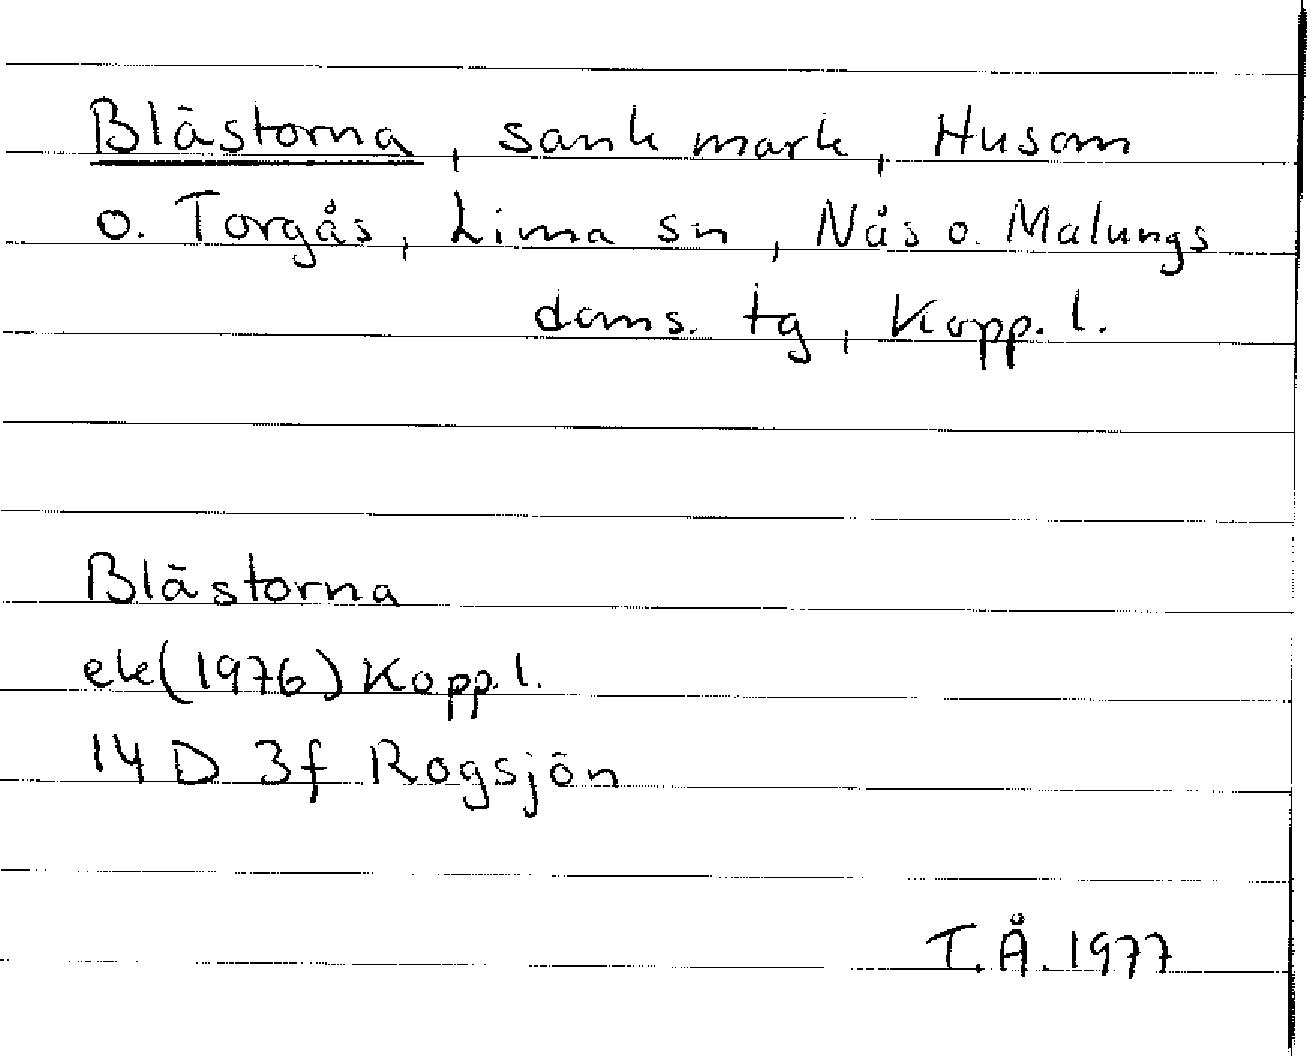 Blästorna, sank mark, Husom
o. Torgås, Lima sn, Nås o. Malungs
doms. tg, Kopp. l.
Blästorna
ek (1976) Kopp. l.
14 D 3f Rogsjön
T.Å. 1977